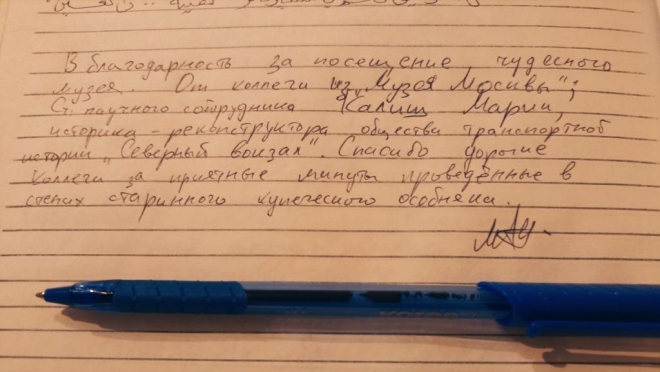 В благодарность за посещение чудесного
музея. От коллеги из „Музея Москвы";
Ст. научного сотрудника Калиш Марии,
историка-реконструктора общества транспортной
истории „Северный вокзал". Спасибо дорогие
коллеги за приятные минуты проведённые в
стенах старинного купеческого особняка.